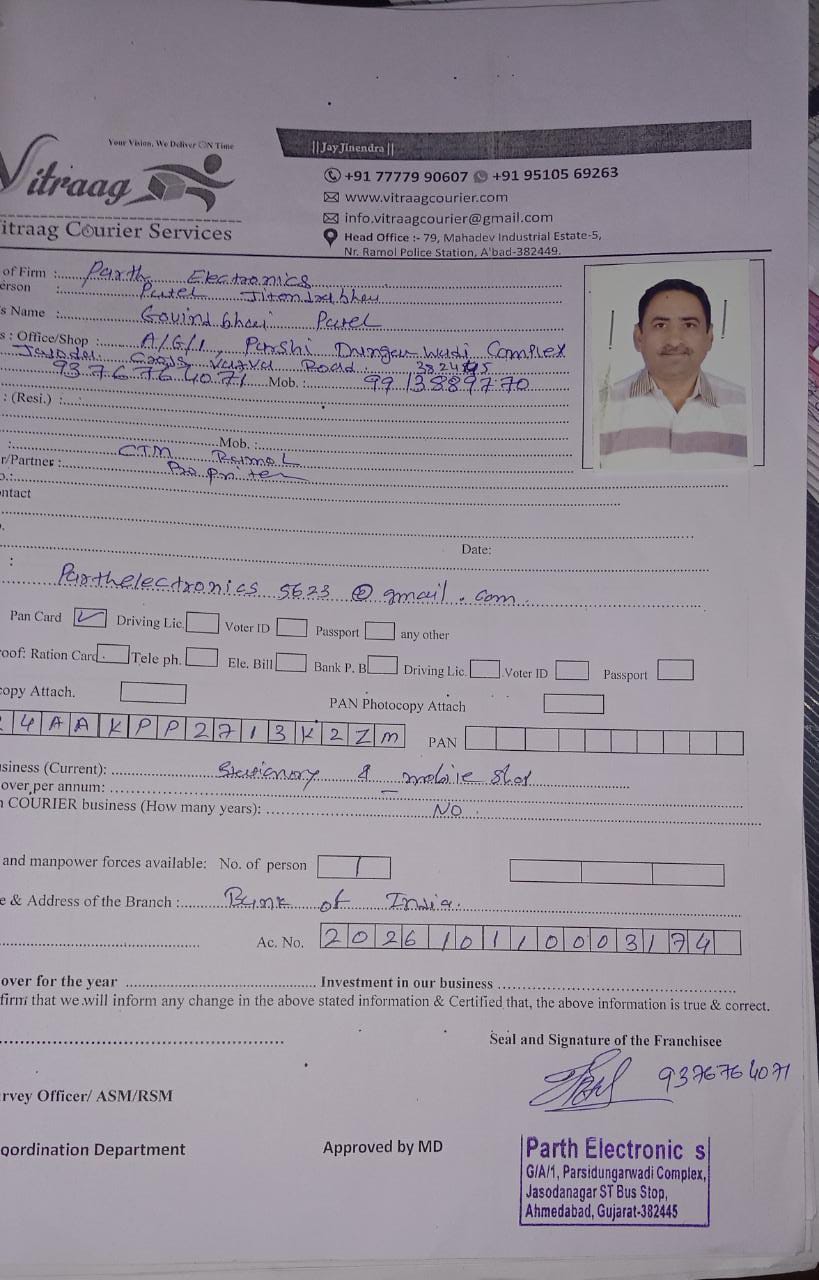 Your Vision, We Deliver ON Time
Vitraag
itraag Courier Services
||Jay Jinendra||
+91 77779 90607 +91 95105 69263
www.vitraagcourier.com
info.vitraagcourier@gmail.com
Head Office :- 79, Mahadev Industrial Estate-5,
Nr. Ramol Police Station, A'bad-382449.
of Firm : Parth Electronics
erson : Patel Jitendrabhai
s Name : Govindbhai Patel
s : Office/Shop : A/G/1, Parshi Dungar Wadi Complex
Road 382445
9376764071 Mob. : 9913889770
: (Resi.) :
Mob. :
: CTM Ramol
r/Partner :
o.:
ntact
Date:
: Parthelectronics5623@gmail.com
Pan Card Driving Lic. Voter ID Passport any other
oof: Ration Card Tele ph. Ele. Bill Bank P. B Driving Lic. Voter ID Passport
copy Attach. PAN Photocopy Attach
4AAKPP2713K2ZM PAN
siness (Current): Stationary & mobile
over per annum:
n COURIER business (How many years): NO
and manpower forces available: No. of person 1
e & Address of the Branch : Bank of India.
Ac. No. 202610110003174
over for the year Investment in our business
firm that we will inform any change in the above stated information & Certified that, the above information is true & correct.
Seal and Signature of the Franchisee
9376764071
rvey Officer/ ASM/RSM
oordination Department Approved by MD
Parth Electronic s
G/A/1, Parsidungarwadi Complex,
Jasodanagar ST Bus Stop,
Ahmedabad, Gujarat-382445